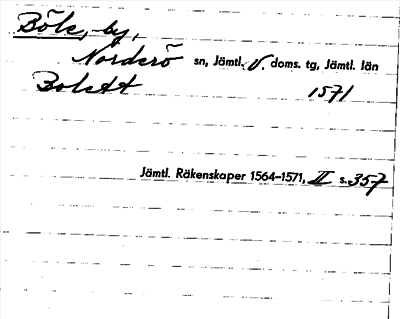 Böle, by,
Norderö sn, Jämtl. V. doms. tg, Jämtl. län
Bolett 1571
Jämtl. Räkenskaper 1564–1571, II s. 357